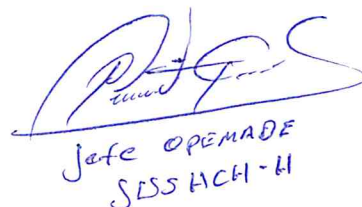 Jefe OPEMADE
SDSS HCH-H